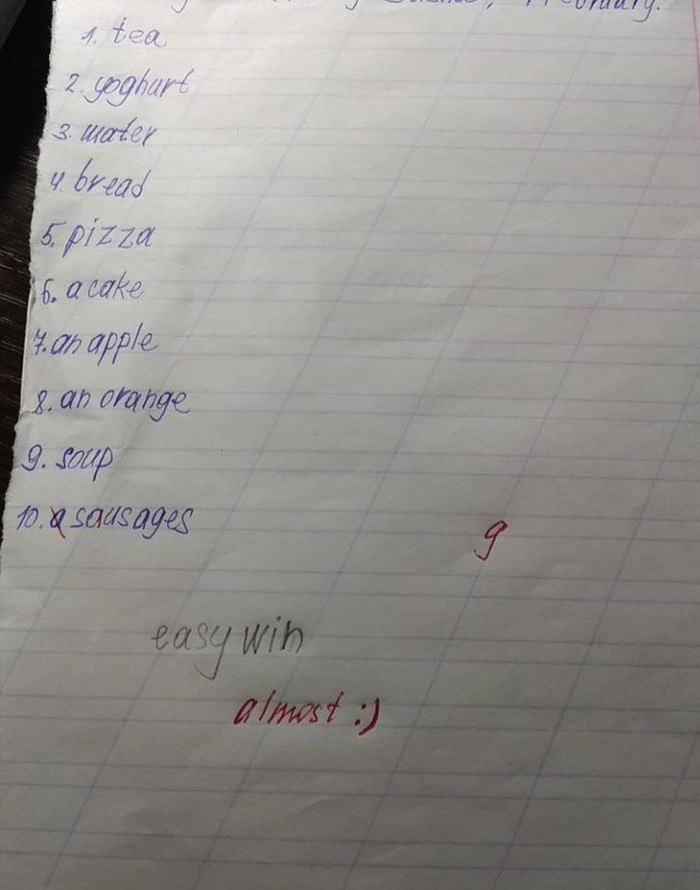 1. tea
2. yoghurt
3. water
4. bread
5. pizza
6. a cake
7. an apple
8. an orange
9. soup
10. a sausages
9
easy win
almost :)